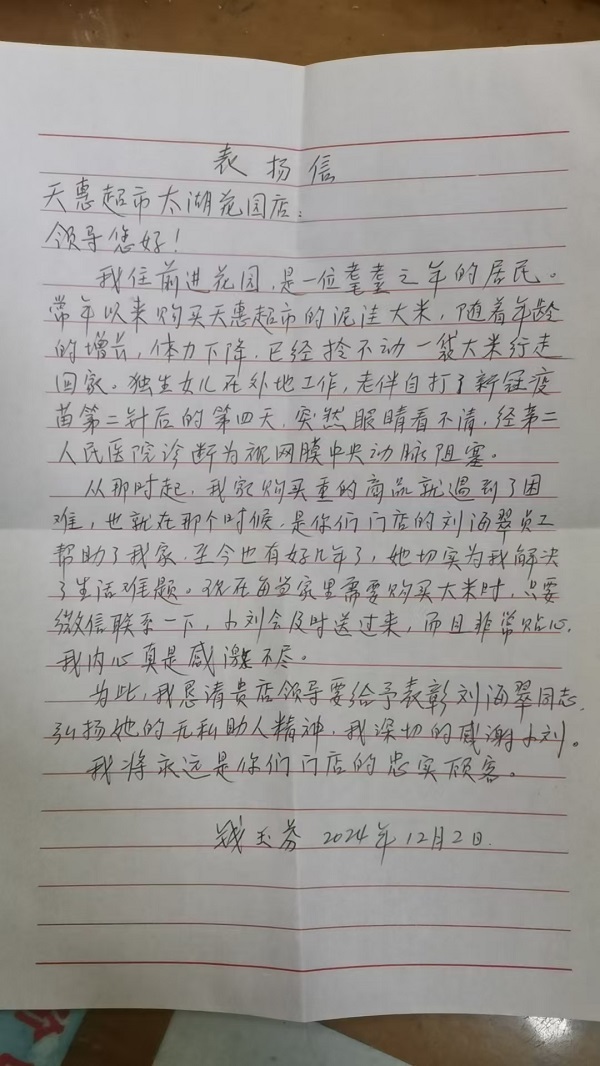 表扬信
天惠超市太湖花园店：
领导您好！
我住前进花园，是一位耄耋之年的居民。
常年以来购买天惠超市的泥洼大米，随着年龄
的增长，体力下降，已经拎不动一袋大米行走
回家。独生女儿在外地工作，老伴自打了新冠疫
苗第二针后的第四天，突然眼睛看不清，经第二
人民医院诊断为视网膜中央动脉阻塞。
从那时起，我家购买重的商品就遇到了困
难，也就在那个时候，是你们门店的刘海翠员工
帮助了我家，至今也有好几年了，她切实为我解决
了生活难题。现在每当家里需要购买大米时，只要
微信联系一下，小刘会及时送过来，而且非常贴心，
我内心真是感激不尽。
为此，我恳请贵店领导要给予表彰刘海翠同志，
弘扬她的无私助人精神，我深切的感谢小刘。
我将永远是你们门店的忠实顾客。
钱玉芬 2024年12月2日.